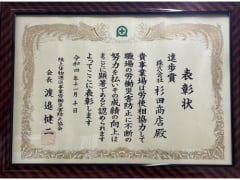 表彰状
進歩賞
株式会社 杉田商店殿
貴事業場は労使相協力して
職場の労働災害防止に不断の
努力を払いその成績の向上は
まことに顕著であると認められます
よってここに表彰します
令和四年十一月十日
陸上貨物運送事業労働災害防止協会
会長 渡邉健二